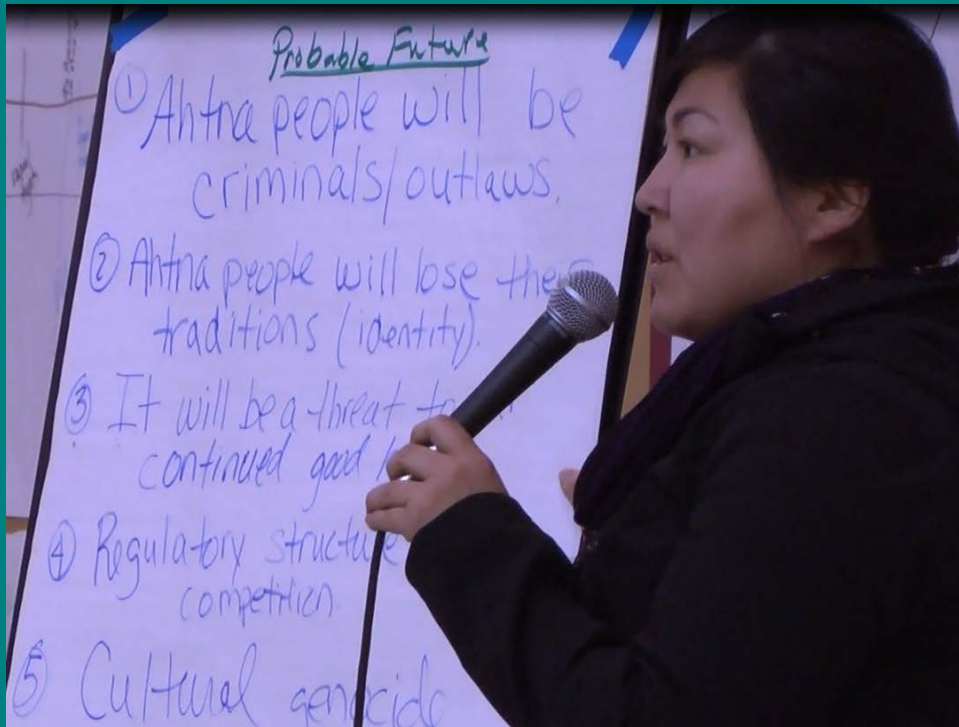 Probable Future
① Ahtna people will be
criminals/outlaws.
② Ahtna people will lose their
traditions (identity).
③ It will be a threat
continued good
④ Regulatory structure
competition
⑤ Cultural genocide